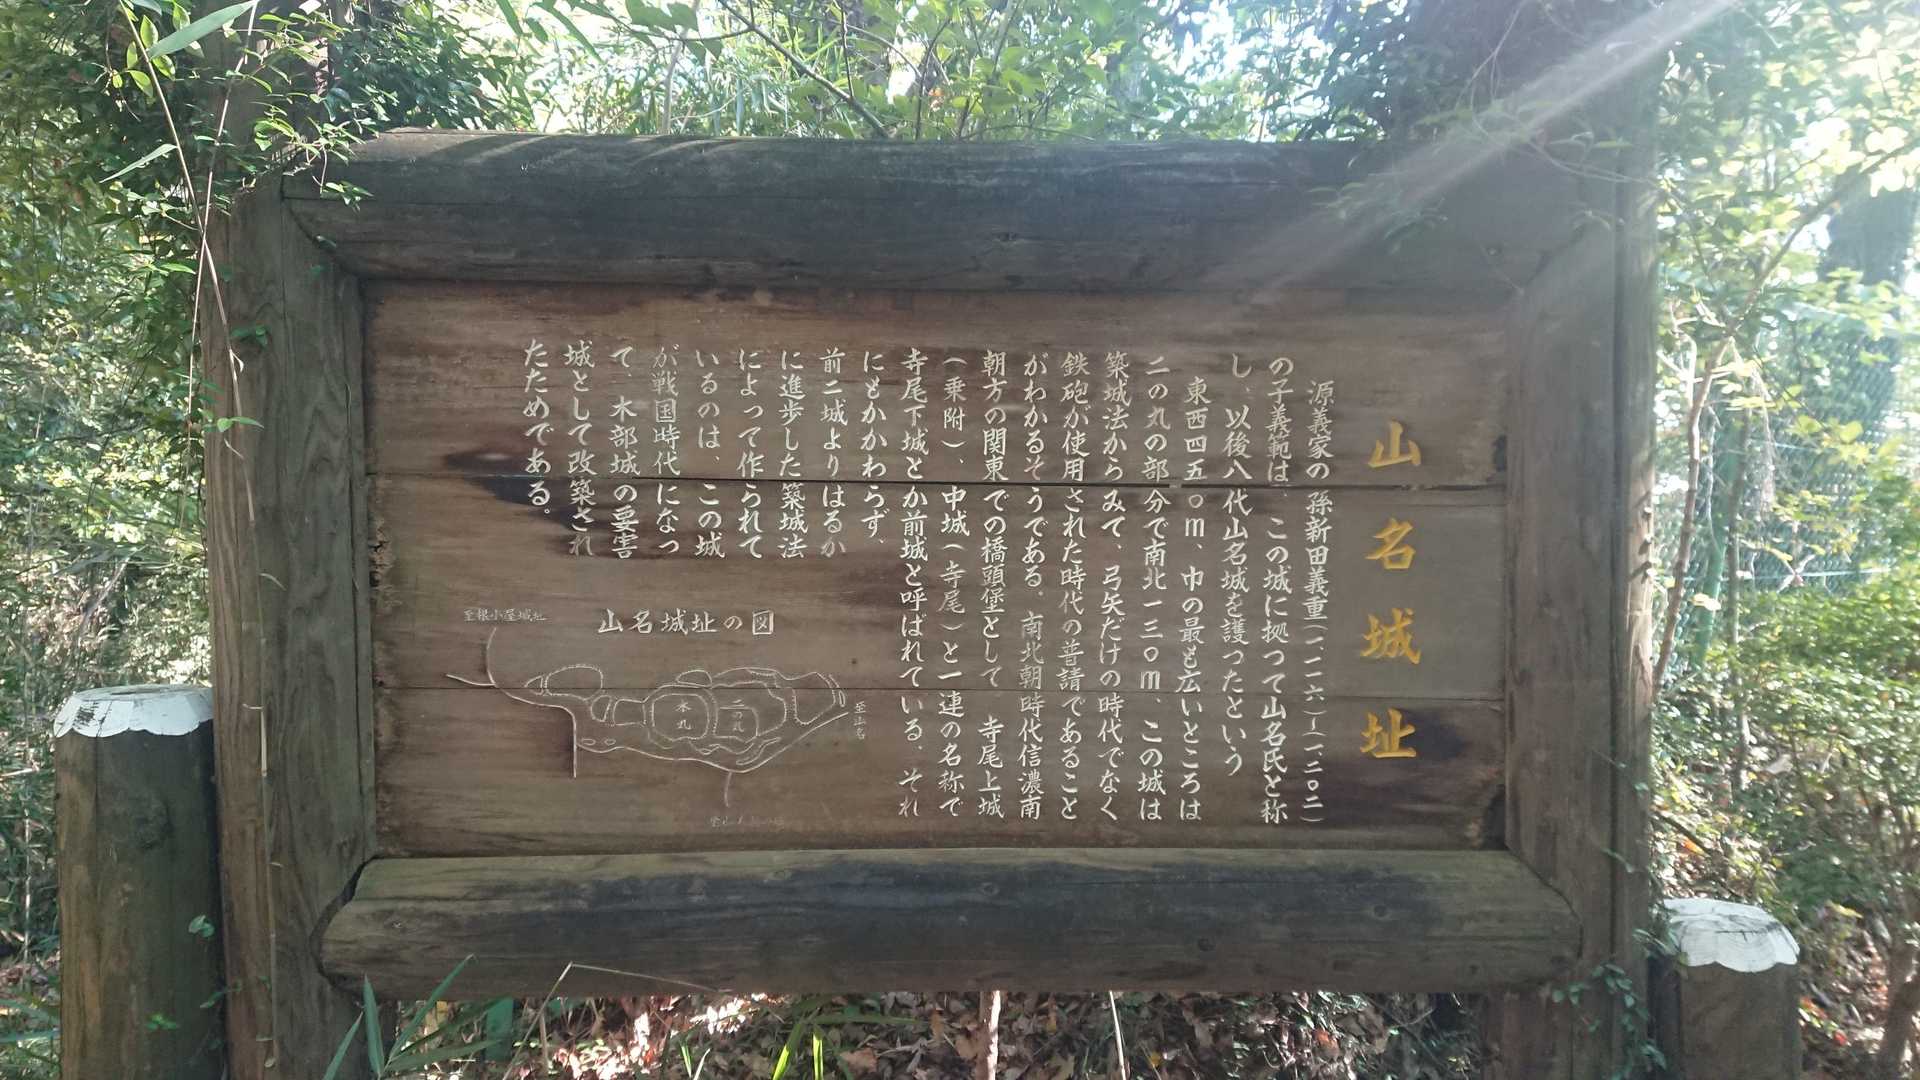 山名城址
源義家の孫新田義重(一、一一六)~(一、二〇二)
の子義範は、この城に拠って山名氏と称
し、以後八代山名城を護ったという
東西四五〇m、巾の最も広いところは
二の丸の部分で南北一三〇m、この城は
築城法からみて、弓矢だけの時代でなく
鉄砲が使用された時代の普請であること
がわかるそうである。南北朝時代信濃南
朝方の関東での橋頭堡として 寺尾上城
(乗附)、中城(寺尾)と一連の名称で
寺尾下城とか前城と呼ばれている。それ
にもかかわらず、
前二城よりはるか
に進歩した築城法
によって作られて
いるのは、この城
が戦国時代になっ
て、木部城の要害
城として改築され
たためである。
山名城址の図
至根小屋城址
本丸
二の丸
至山名